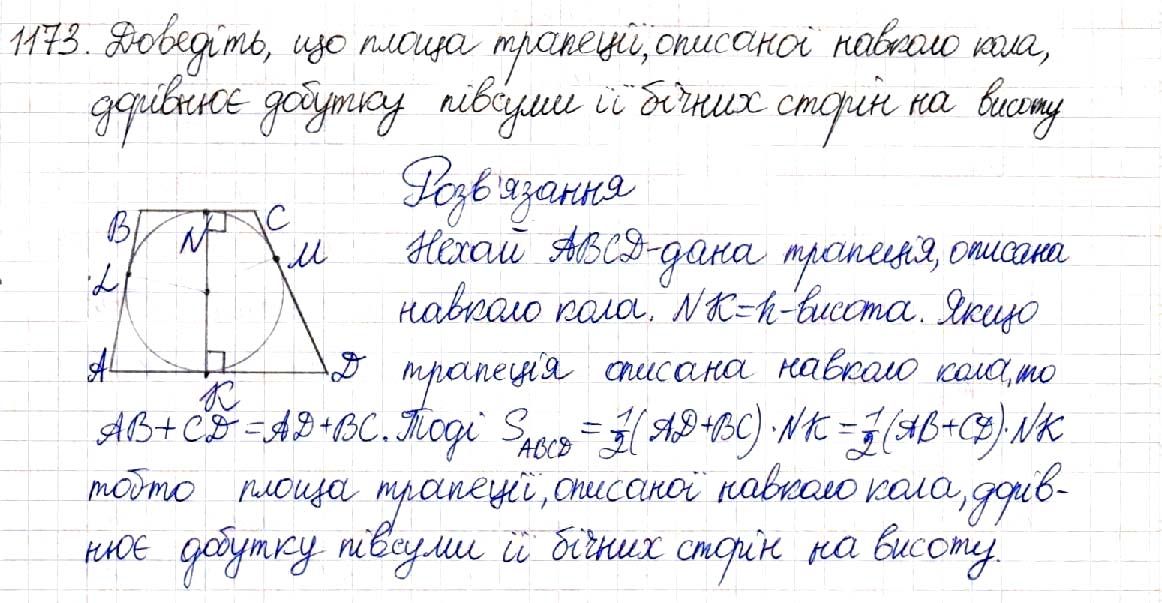 1173. Доведіть, що площа трапеції, описаної навколо кола,
дорівнює добутку півсуми її бічних сторін на висоту
Розв'язання
B N C
Нехай ABCD-дана трапеція, описана
M
L
навколо кола. NK=h-висота. Якщо
A K D
трапеція описана навколо кола, то
AB+CD=AD+BC. Тоді S_ABCD = 1/2(AD+BC)·NK = 1/2(AB+CD)·NK
тобто площа трапеції, описаної навколо кола, дорів-
нює добутку півсуми її бічних сторін на висоту.